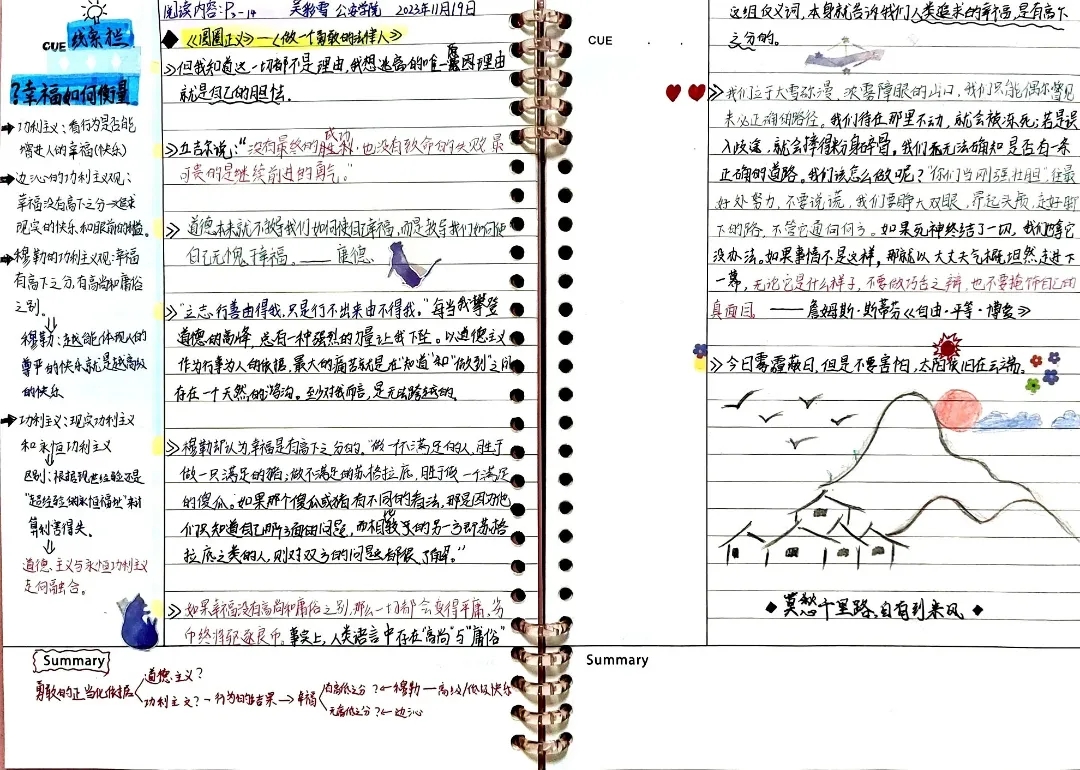 阅读内容:P₅-14 吴彩雪 公安学院 2023年11月19日
CUE 线索栏
?幸福如何衡量
功利主义:看行为是否能
增进人的幸福(快乐)
边沁的功利主义观:
幸福没有高下之分一追求
现实的快乐和眼前的利益。
穆勒的功利主义观:幸福
有高下之分,有高尚和庸俗
之别。
穆勒:越能体现人的
尊严的快乐就是越高级
的快乐
功利主义:现实功利主义
和永恒功利主义
区别:根据现世经验还是
"超经验的永恒福祉"来计
算利害得失。
道德主义与永恒功利主义
走向融合。
《圆圈正义》—《做一个勇敢的法律人》
但我知道这一切都不是理由,我想逃离的唯一原因理由
就是自己的胆怯。
丘吉尔说:"没有最终的成功,也没有致命的失败,最
可贵的是继续前进的勇气。"
道德本来就不教导我们如何使自己幸福,而是教导我们如何使
自己无愧于幸福。——康德
"立志行善由得我,只是行不出来由不得我。"每当我攀登
道德的高峰,总有一种强烈的力量让我下坠。以道德主义
作为行事为人的依据,最大的痛苦就是在"知道"和"做到"之间
存在一个天然的鸿沟。至少对我而言,是无法跨越的。
穆勒却认为幸福是有高下之分的。"做一个不满足的人,胜于
做一只满足的猪;做不满足的苏格拉底,胜于做一个满足
的傻瓜。如果那个傻瓜或猪有不同的看法,那是因为他
们只知道自己那方面的问题,而相较的另一方即苏格
拉底之类的人,则对双方的问题都很了解。"
如果幸福没有高尚和庸俗之别,那么一切都会变得平庸,劣
币终将驱逐良币。事实上,人类语言中存在"高尚"与"庸俗"
Summary
勇敢的正当化依据
道德主义?
功利主义?→行为的结果→幸福
有高低之分?←穆勒—高级/低级快乐
无高低之分?←边沁
CUE
这组反义词,本身就告诉我们人类追求的幸福,是有高下
之分的。
我们立于大雪弥漫,浓雾障眼的山口,我们只能偶尔瞥见
未必正确的路径。我们待在那里不动,就会被冻死;若是误
入歧途,就会摔得粉身碎骨。我们无法确知是否有一条
正确的道路。我们该怎么做呢?"你们当刚强壮胆",往最
好处努力,不要说谎,我们要睁大双眼,昂起头颅,走好脚
下的路,不管它通向何方。如果死神终结了一切,我们拿它
没办法。如果事情不是这样,那就以大丈夫气概坦然走进下
一幕,无论它是什么样子,不要做巧舌之辩,也不要掩饰自己的
真面目。——詹姆斯·斯蒂芬《自由·平等·博爱》
今日雾霾蔽日,但是不要害怕,太阳依旧在云端。
莫愁千里路,自有到来风
Summary